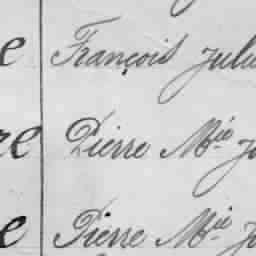 e François Juli
re Pierre Mie J
e Pierre Mie J